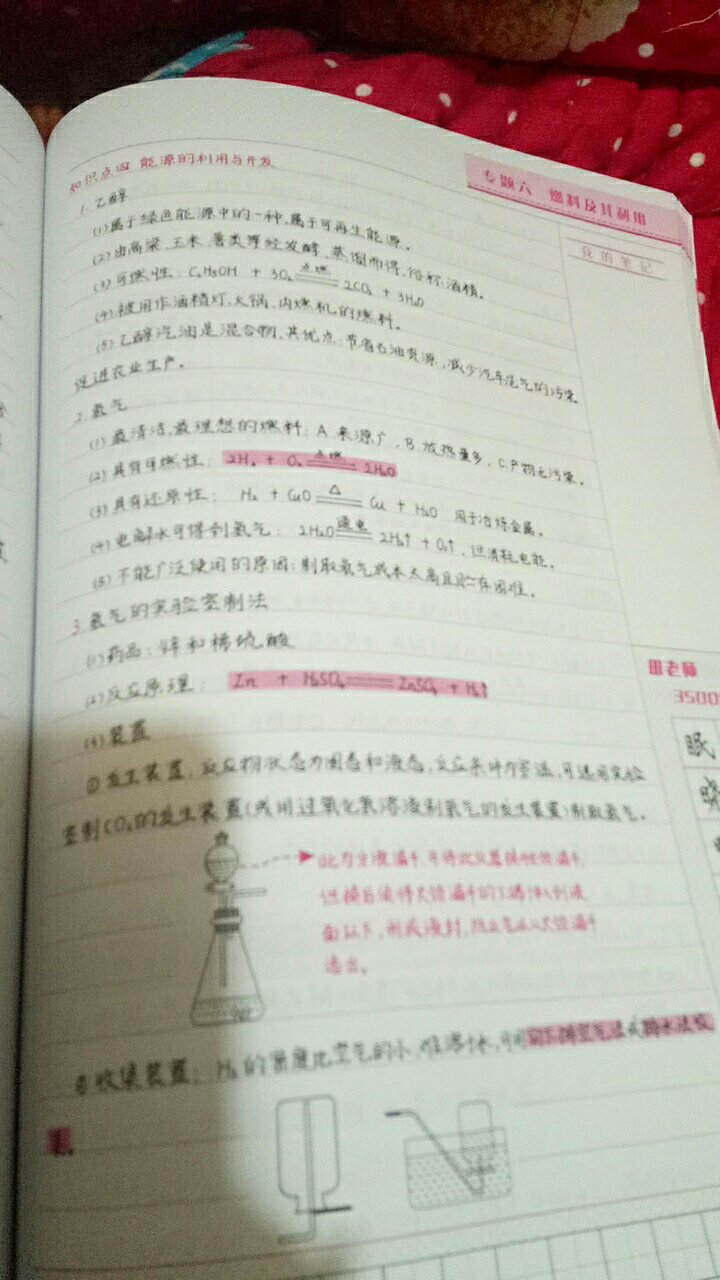 专题六 燃料及其利用
我的笔记
知识点四 能源的利用与开发
1.乙醇
(1)属于绿色能源中的一种,属于可再生能源。
(2)由高粱、玉米、薯类等经发酵、蒸馏而得,俗称:酒精。
(3)可燃性:C₂H₅OH + 3O₂ 点燃 2CO₂ + 3H₂O
(4)被用作酒精灯、火锅、内燃机的燃料。
(5)乙醇汽油是混合物,其优点:节省石油资源,减少汽车尾气的污染,
促进农业生产。
2.氢气
(1)最清洁、最理想的燃料:A.来源广、B.放热量多、C.产物无污染。
(2)具有可燃性:2H₂ + O₂ 点燃 2H₂O
(3)具有还原性:H₂ + CuO △ Cu + H₂O 用于冶炼金属。
(4)电解水可得到氢气:2H₂O 通电 2H₂↑ + O₂↑,但消耗电能。
(5)不能广泛使用的原因:制取氢气成本太高且贮存困难。
3.氢气的实验室制法
(1)药品:锌和稀硫酸
(2)反应原理:Zn + H₂SO₄ = ZnSO₄ + H₂↑
(3)装置
①发生装置:反应物状态为固态和液态,反应条件为常温,可选用实验
室制CO₂的发生装置(或用过氧化氢溶液制氧气的发生装置)制取氢气。
此为分液漏斗,可将此仪器换成长颈漏斗,
但换后须将长颈漏斗的下端伸入到液
面以下,形成液封,防止气体从长颈漏斗
逸出。
②收集装置:H₂的密度比空气的小,难溶于水,可用向下排空气法或排水法收
集。
田老师
3500
眠
晓